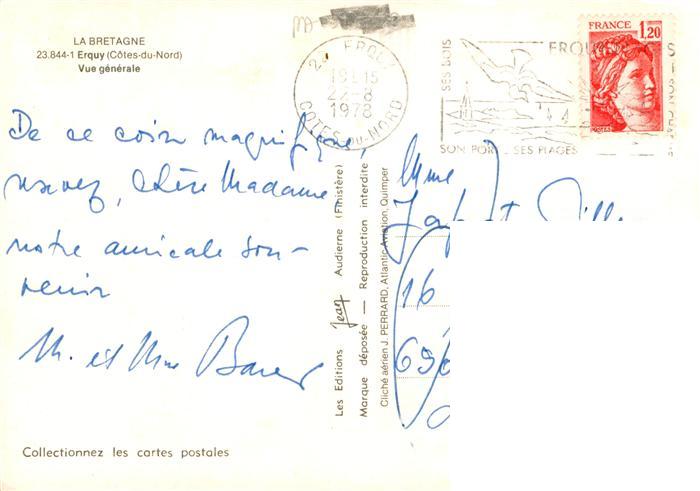 LA BRETAGNE
23.844-1 Erquy (Côtes-du-Nord)
Vue générale
22 ERQUY
19H15
22-8
1978
COTES-DU-NORD
ERQUY
SES BOIS
SON PORT SES PLAGES
FRANCE 1,20
POSTES
De ce coin magnifique,
recevez, chère Madame,
notre amicale sou-
venir
M. et Mme
Mme
16
Les Editions Jean Audierne (Finistère)
Marque déposée — Reproduction interdite
Cliché aérien J. PERRARD, Atlantic Aviation, Quimper
Collectionnez les cartes postales